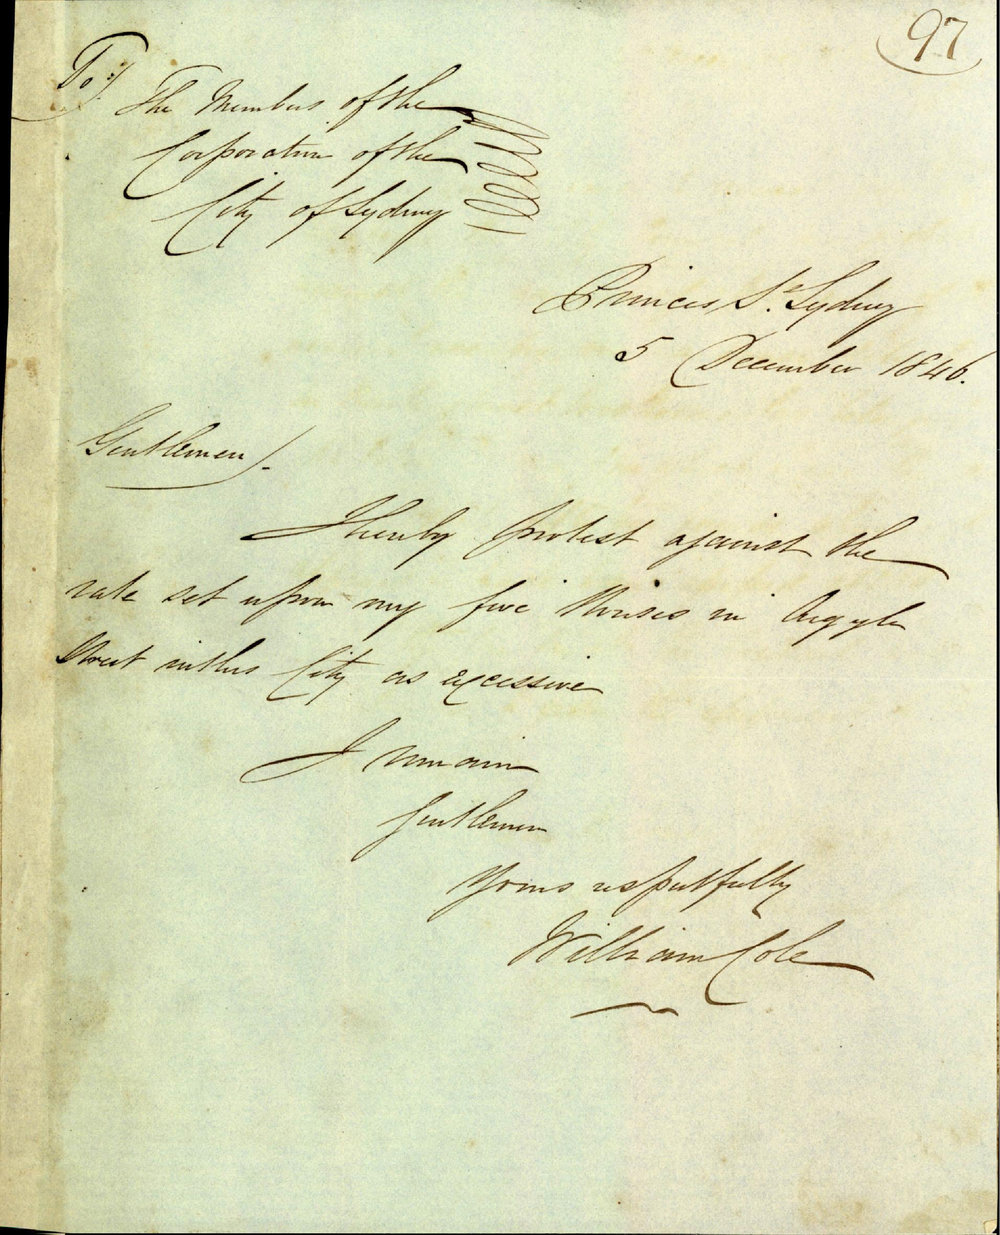 97
To/
The Members of the
Corporation of the
City of Sydney
Princes St. Sydney
5 December 1846.
Gentlemen/.
I hereby protest against the
rate set upon my five Houses in Argyle
Street in this City as excessive
I remain
Gentlemen
Yours respectfully
William Cole